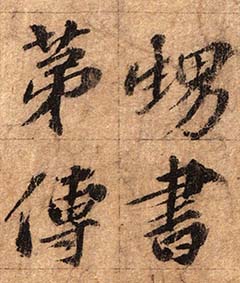 甥書
苐傳